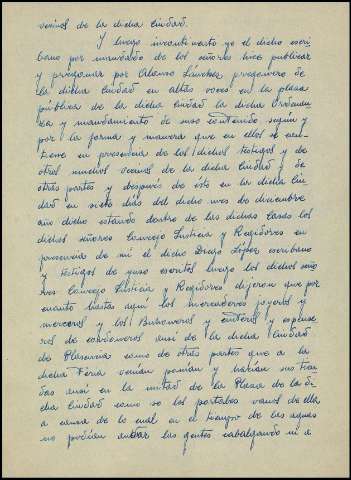 vecinos de la dicha Ciudad.
Y luego incontinente yo el dicho escri
bano por mandado de los señores hice publicar
y pregonar por Alonso Sánchez, pregonero de
la dicha Ciudad en altas voces en la plaza
pública de la dicha Ciudad la dicha Ordenan
za y mandamiento de suso contenido según y
por la forma y manera que en ellos se con
tiene en presencia de los dichos testigos y de
otros muchos vecinos de la dicha Ciudad y de
otras partes y después de esto en la dicha Ciu
dad en siete días del dicho mes de diciembre
año dicho estando dentro de las dichas Casas los
dichos señores Concejo Justicia y Regidores en
presencia de mi el dicho Diego López escribano
y testigos de yuso escritos luego los dichos seño
res Concejo Justicia y Regidores dijeron que por
cuanto hasta aquí los mercaderes joyeros y
merceros y los Buhoneros y
de ansi de la dicha Ciudad
de Plasencia como de otras partes que a la
dicha Feria venían ponían y habían sus tien
das ansi en la mitad de la Plaza de la di
cha Ciudad como so los portales vanos de ella
a causa de lo cual en el tiempo de las aguas
no podían andar las gentes cabalgando ni a